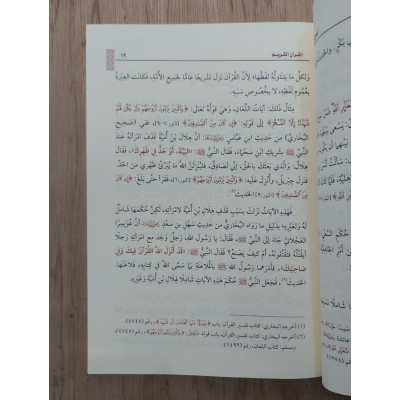 القرآن الكريم ١٩
ولكل ما يتناوله لفظها؛ لأن القرآن نزل تشريعًا عامًّا لجميع الأمة، فكانت العبرة
بعموم لفظه، لا بخصوص سببه.
مثال ذلك: آيات اللعان، وهي قوله تعالى: ﴿وَالَّذِينَ يَرْمُونَ أَزْوَاجَهُمْ وَلَمْ يَكُن لَّهُمْ
شُهَدَاءُ إِلَّا أَنفُسُهُمْ﴾ إلى ﴿إِن كَانَ مِنَ الصَّادِقِينَ﴾ ففي (صحيح
البخاري) من حديث ابن عباس أن هلال بن أمية قذف امرأته عند
النبي ﷺ بشريك ابن سحماء، فقال النبي ﷺ: «البينة أو حد في ظهرك»، فقال
هلال: والذي بعثك بالحق، إني لصادق، فلينزلن الله ما يبرئ ظهري من الحد.
فنزل جبريل، وأنزل عليه: ﴿وَالَّذِينَ يَرْمُونَ أَزْوَاجَهُمْ﴾ فقرأ حتى بلغ: ﴿إِن كَانَ
مِنَ الصَّادِقِينَ﴾ الحديث(١).
فهذه الآيات نزلت بسبب قذف هلال بن أمية لامرأته، لكن حكمها شامل
له ولغيره؛ بدليل ما رواه البخاري من حديث سهل بن سعد أن عويمرًا
العجلاني جاء إلى النبي ﷺ، فقال: يا رسول الله، رجل وجد مع امرأته رجلًا
أيقتله فتقتلونه، أم كيف يصنع؟ فقال النبي ﷺ: «قد أنزل الله القرآن فيك وفي
صاحبتك»، فأمرهما رسول الله ﷺ بالملاعنة بما سمى الله في كتابه، فلاعنها.
الحديث(٢)، فجعل النبي ﷺ حكم هذه الآيات شاملًا لهلال بن أمية وغيره.
(١) أخرجه البخاري: كتاب تفسير القرآن، باب رقم (٤٧٤٧).
(٢) أخرجه البخاري: كتاب تفسير القرآن، باب قوله رقم (٤٧٤٥)،
ومسلم: كتاب اللعان، رقم (١٤٩٢).